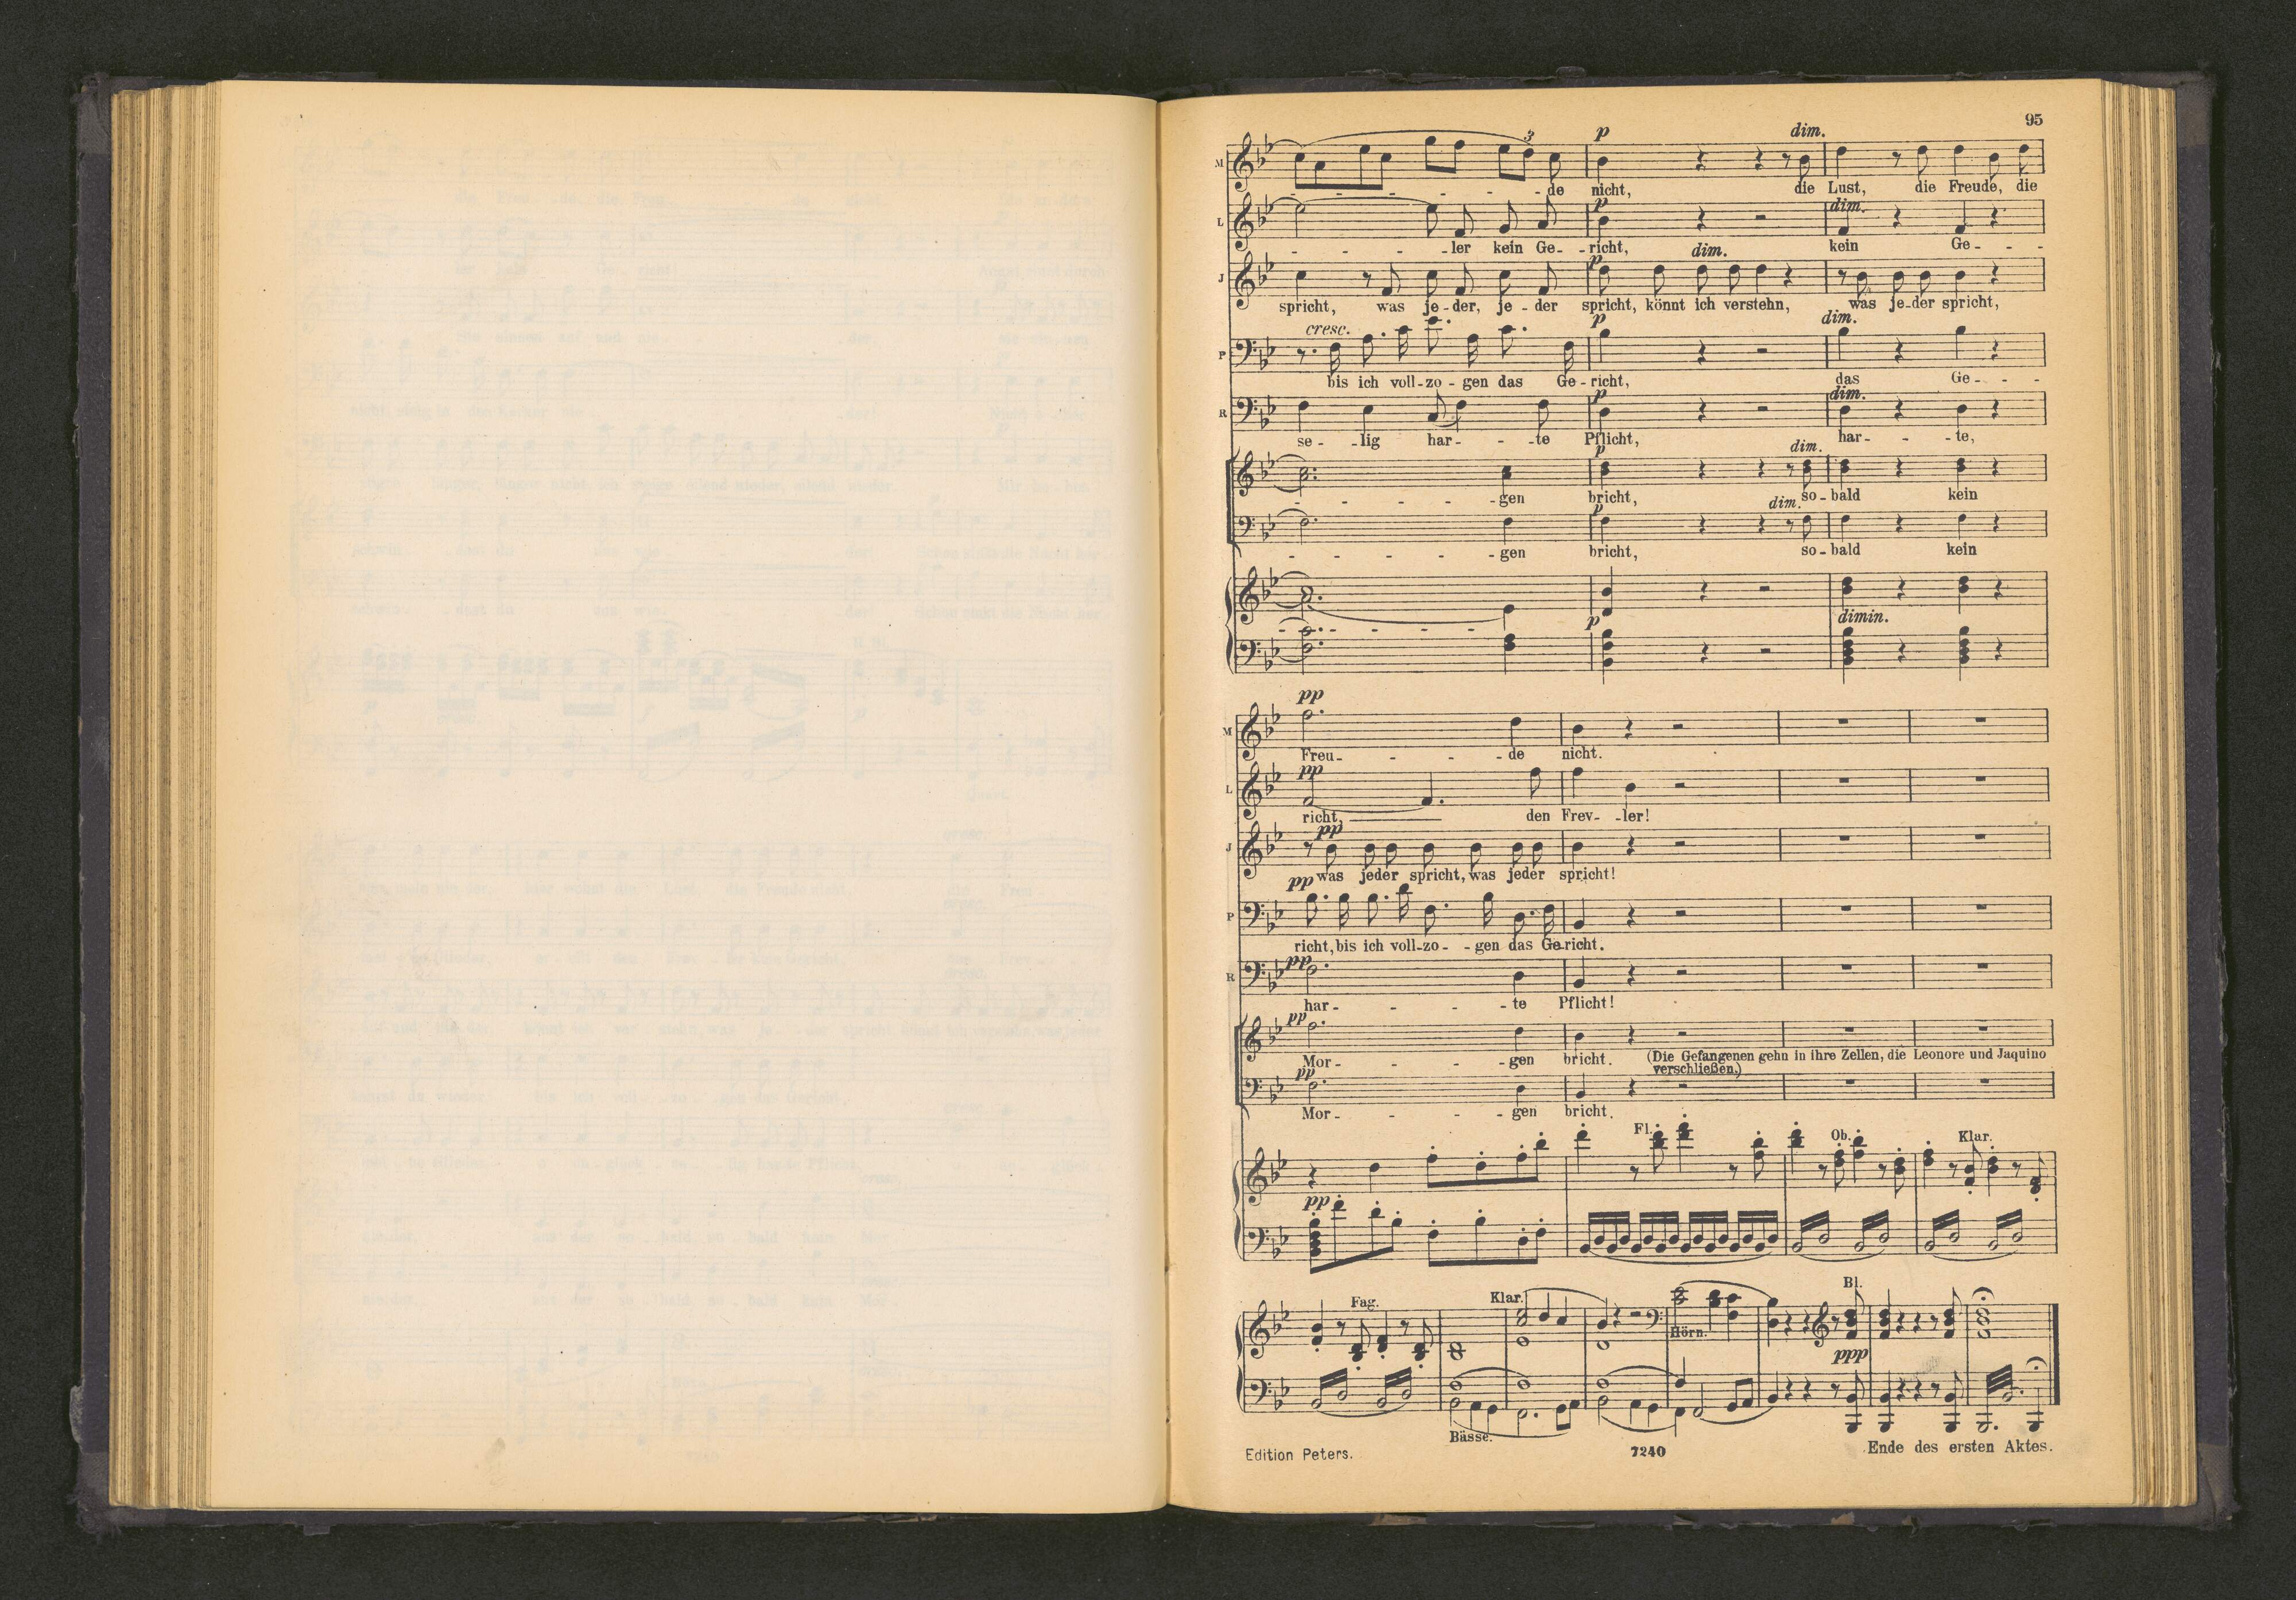 95
3 p dim.
M
- - - - - - de nicht, die Lust, die Freude, die
p dim.
L
- - - - ler kein Ge - richt, kein Ge - -
p dim.
J
spricht, was je - der, je - der spricht, könnt ich verstehn, was je - der spricht,
cresc. p dim.
P
bis ich voll - zo - gen das Ge - richt, das Ge - -
p dim.
R
se - - lig har - - - te Pflicht, har - - - te,
p dim.
- - - - - gen bricht, so - bald kein
p dim.
- - - - - gen bricht, so - bald kein
p dimin.
pp
M
Freu - - - - - de nicht.
pp
L
richt, den Frev - - ler!
pp
J
was jeder spricht, was jeder spricht!
pp
P
richt, bis ich voll - zo - - gen das Gericht.
pp
R
har - - - - - te Pflicht!
pp
Mor - - - - - gen bricht. (Die Gefangenen gehn in ihre Zellen, die Leonore und Jaquino
verschließen.)
pp
Mor - - - - - gen bricht.
Fl. Ob. Klar.
pp
Fag. Klar. Hörn. Bl.
ppp
Bässe.
Edition Peters. 7240 Ende des ersten Aktes.